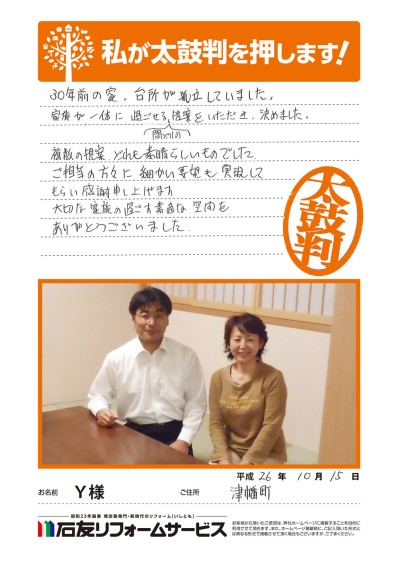 私が太鼓判を押します!
30年前の家。台所が孤立していました。
家族が一体に過ごせる提案をいただき、決めました。
間取りの
複数の提案、どれも素晴らしいものでした。
ご担当の方々に細かい要望も実現して
もらい感謝申し上げます
大切な家族の過ごす素敵な空間を
ありがとうございました。
太鼓判
平成26年10月15日
お名前 Y様 ご住所 津幡町
昭和23年創業 増改築専門・新時代のリフォーム[いしとも]
石友リフォームサービス